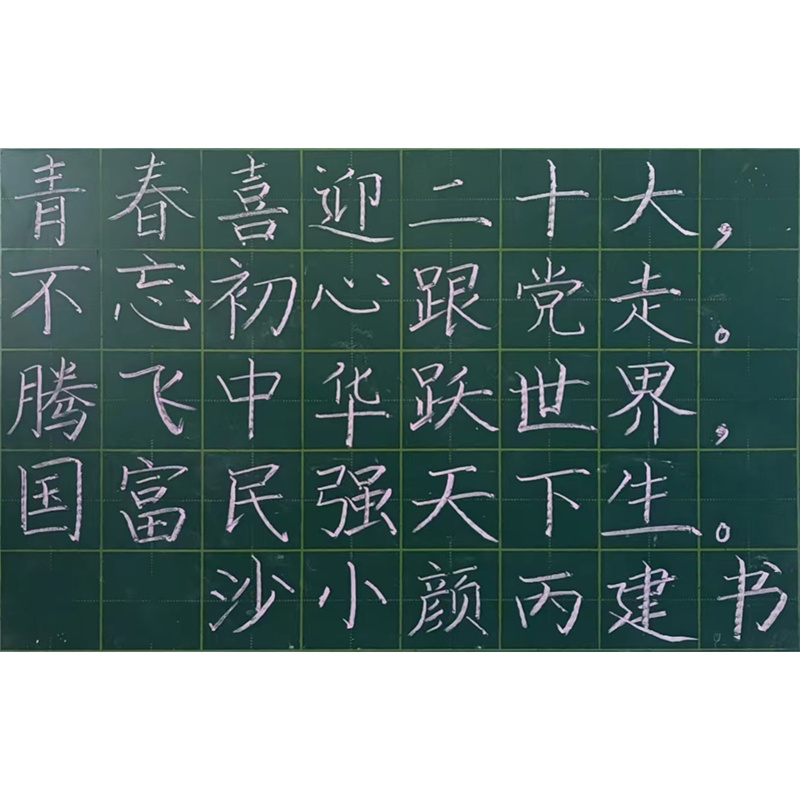 青春喜迎二十大，
不忘初心跟党走。
腾飞中华跃世界，
国富民强天下生。
沙小颜丙建书